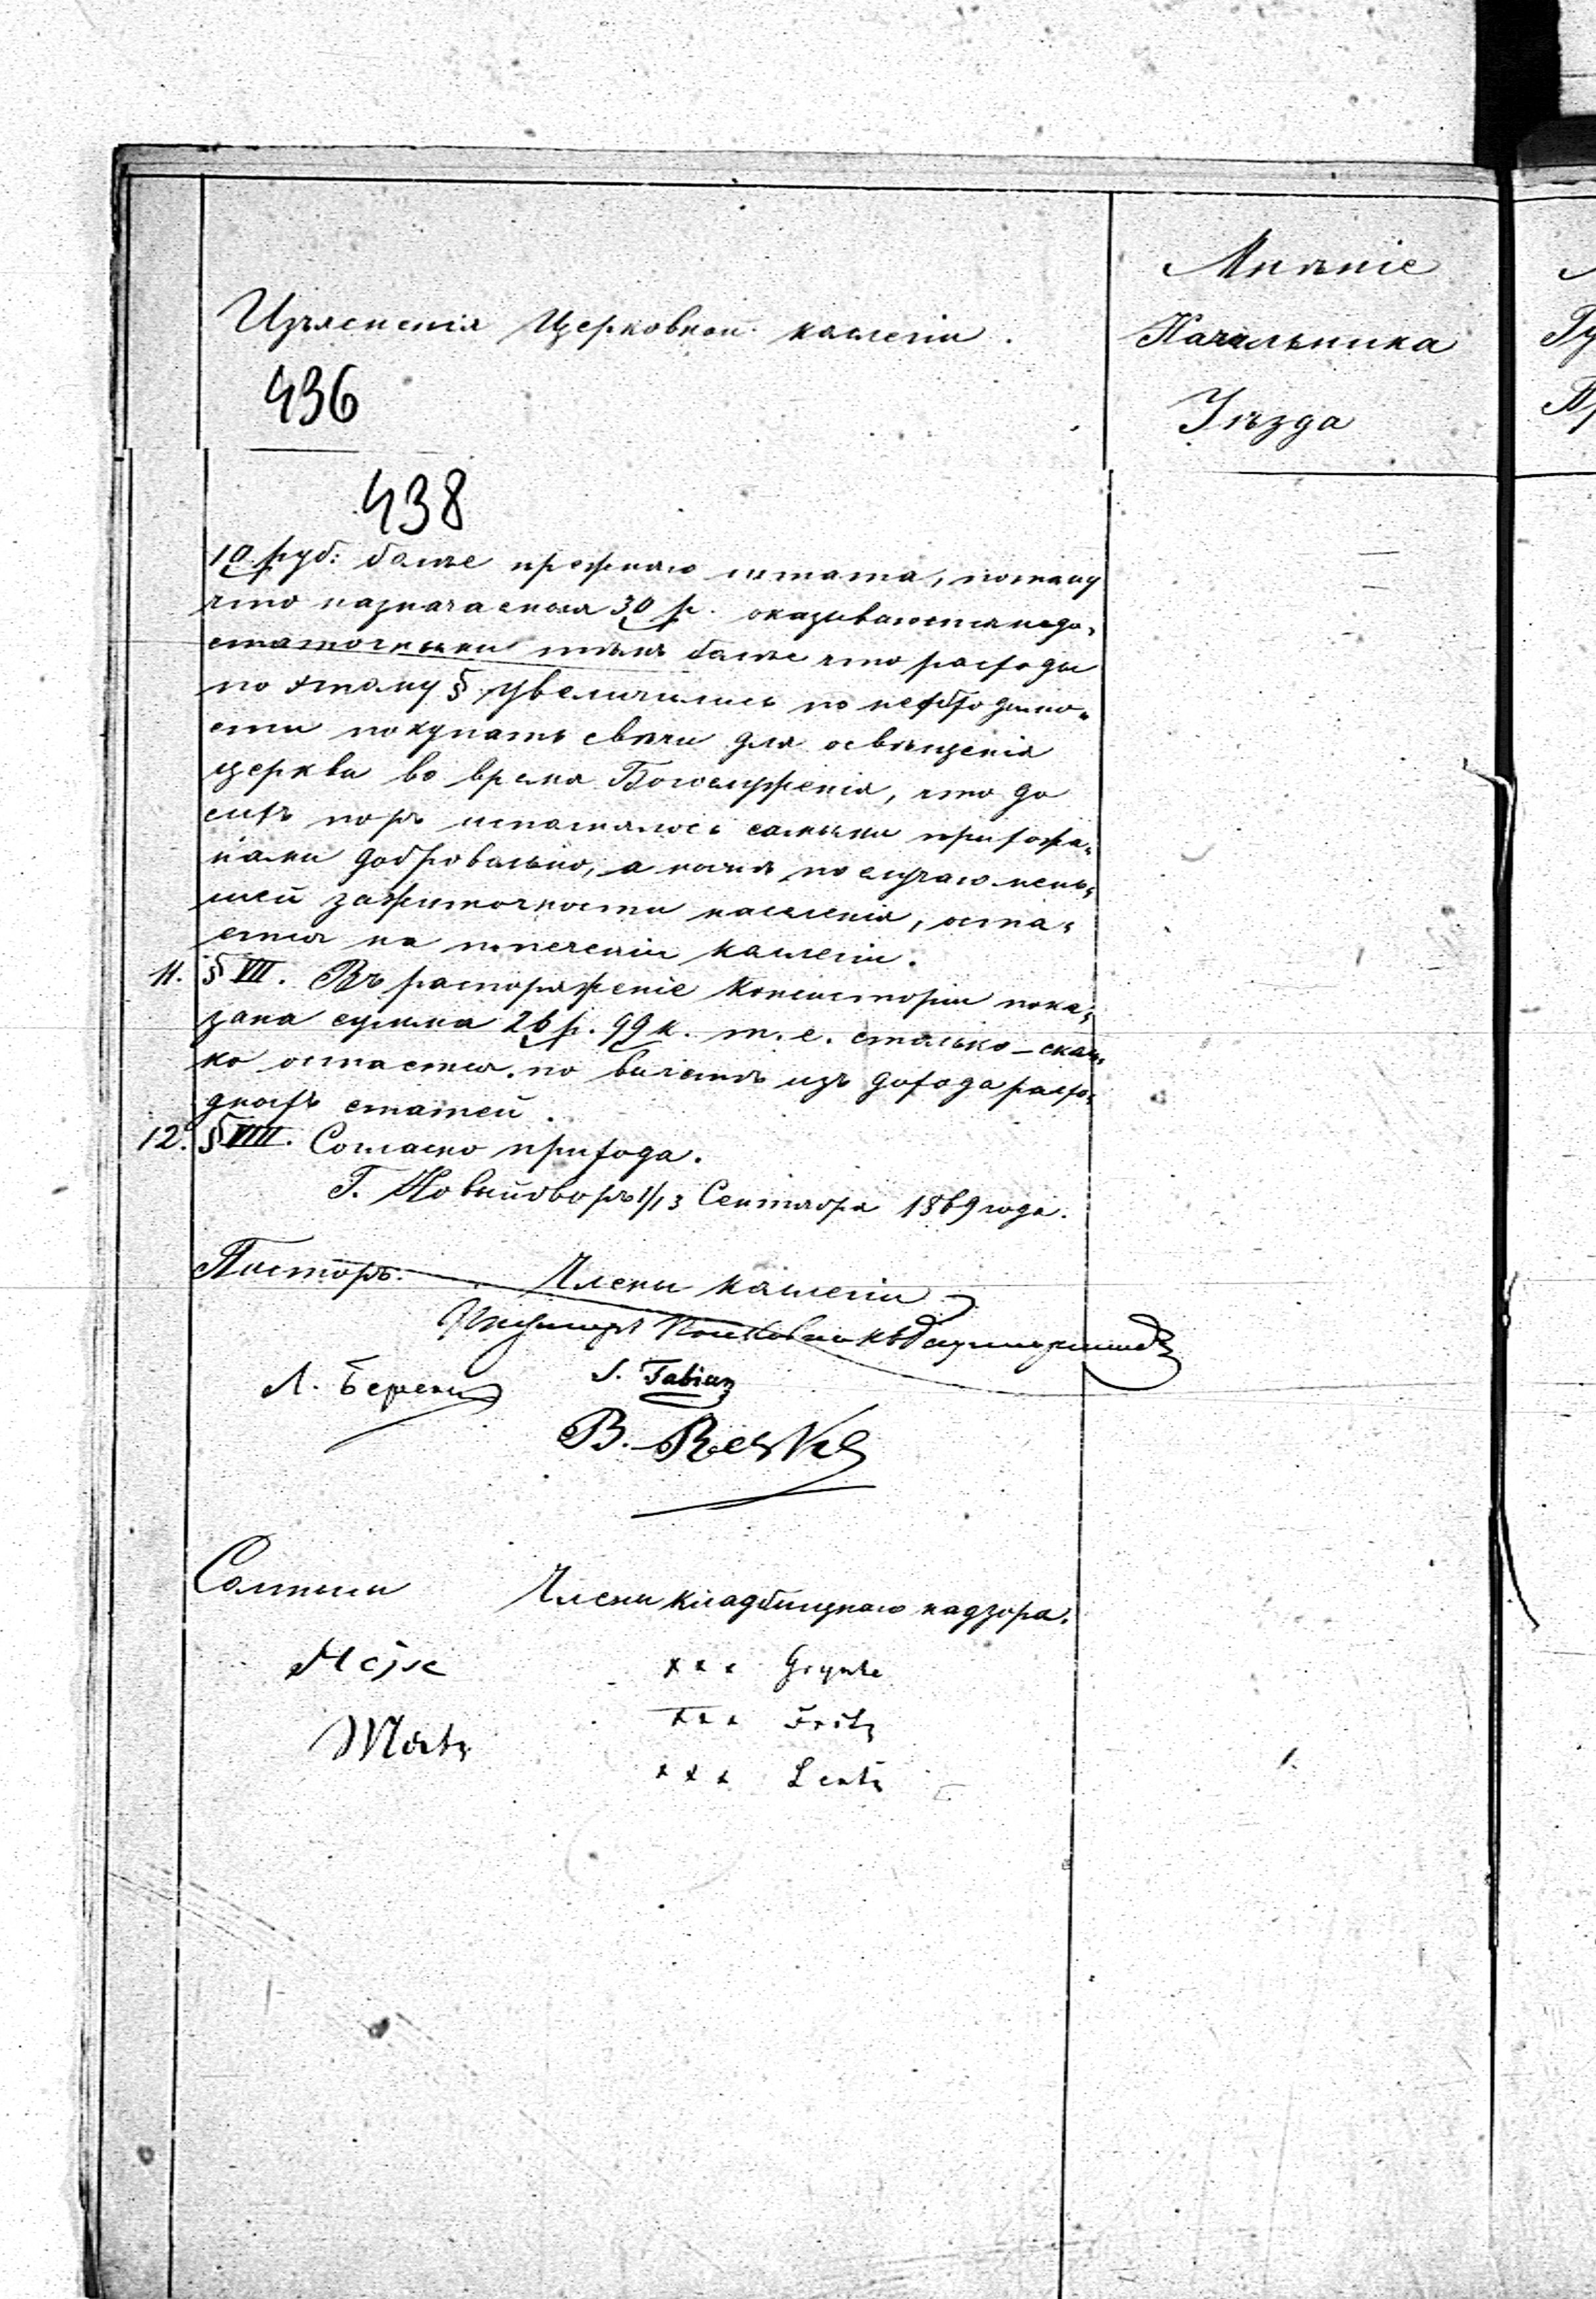 Изъясненія Церковной каллегіи.
Мнѣніе
Начальника
Уѣзда
436
438
10 руб: болѣе прежняго штата, потому
что назначаемыя 30 р. оказываются недо-
статочными тѣмъ болѣе что расходы
по этому § увеличились по необходимо-
сти покупать свѣчи для освѣщенія
церкви во время Богослуженія, что до
сихъ поръ исполнялось самыми прихожа-
нами добровольно, а нынѣ по случаю мень-
шей зажиточности населенія, оста-
ется на попеченіи каллегіи.
11. § VII. Въ распоряженіе Консисторіи пока-
зана сумма 26 р. 99 к. т. е. столько-сколь-
ко остается по вычетѣ изъ дохода расхо-
дныхъ статей.
12. § VIII. Согласно прихода.
Г. Новыйдворъ 1/13 Сентября 1869 года.
Пасторъ. Члены каллегіи
Л. Беренц J. Fabian
B. Reske
Солтысы Члены кладбищнаго надзора.
xxx
xxx Fritz
xxx Lentz